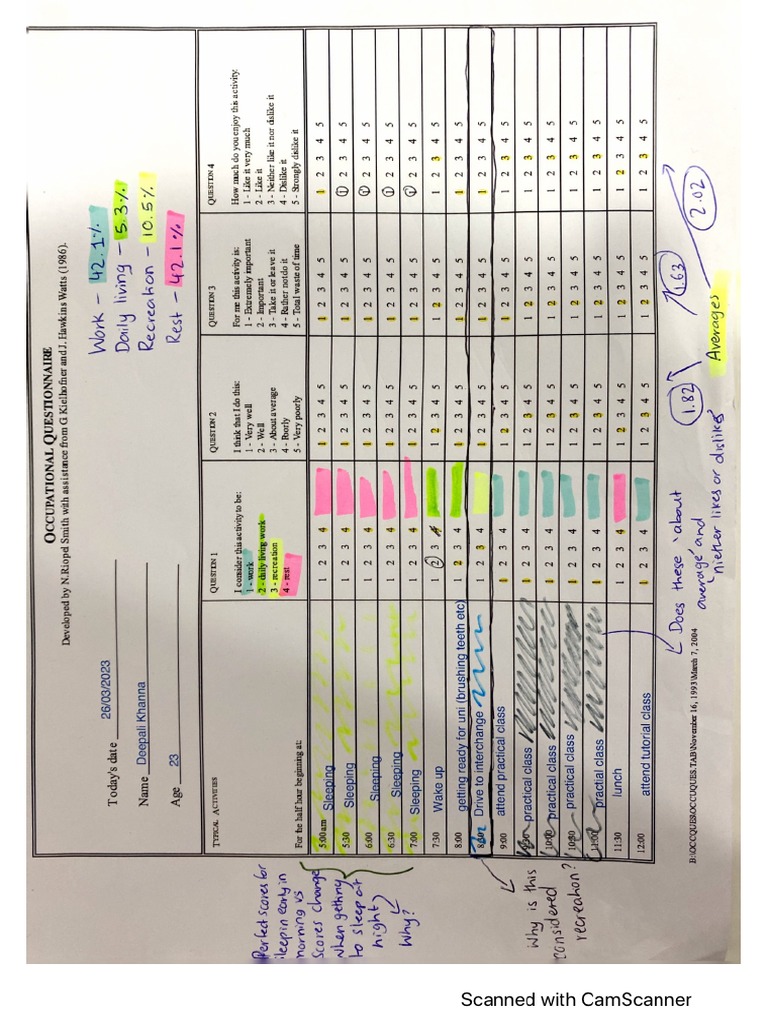 OCCUPATIONAL QUESTIONNAIRE
Developed by N. Riopel Smith with assistance from G. Kielhofner and J. Hawkins Watts (1986).
Today's date 26/03/2023
Name Deepali Khanna
Age 23
Work - 42.1%
Daily living - 5.3%
Recreation - 10.5%
Rest - 42.1%
TYPICAL ACTIVITIES
For the half hour beginning at:
QUESTION 1
I consider this activity to be:
1 - work
2 - daily living work
3 - recreation
4 - rest
QUESTION 2
I think that I do this:
1 - Very well
2 - Well
3 - About average
4 - Poorly
5 - Very poorly
QUESTION 3
For me this activity is:
1 - Extremely important
2 - Important
3 - Take it or leave it
4 - Rather not do it
5 - Total waste of time
QUESTION 4
How much do you enjoy this activity:
1 - Like it very much
2 - Like it
3 - Neither like it nor dislike it
4 - Dislike it
5 - Strongly dislike it
5:00am Sleeping 1 2 3 4 1 2 3 4 5 1 2 3 4 5 1 2 3 4 5
5:30 Sleeping 1 2 3 4 1 2 3 4 5 1 2 3 4 5 1 2 3 4 5
6:00 Sleeping 1 2 3 4 1 2 3 4 5 1 2 3 4 5 1 2 3 4 5
6:30 Sleeping 1 2 3 4 1 2 3 4 5 1 2 3 4 5 1 2 3 4 5
7:00 Sleeping 1 2 3 4 1 2 3 4 5 1 2 3 4 5 1 2 3 4 5
7:30 Wake up 1 2 3 4 1 2 3 4 5 1 2 3 4 5 1 2 3 4 5
8:00 getting ready for uni (brushing teeth etc) 1 2 3 4 1 2 3 4 5 1 2 3 4 5 1 2 3 4 5
8:30 Drive to interchange 1 2 3 4 1 2 3 4 5 1 2 3 4 5 1 2 3 4 5
9:00 attend practical class 1 2 3 4 1 2 3 4 5 1 2 3 4 5 1 2 3 4 5
9:30 practical class 1 2 3 4 1 2 3 4 5 1 2 3 4 5 1 2 3 4 5
10:00 practical class 1 2 3 4 1 2 3 4 5 1 2 3 4 5 1 2 3 4 5
10:30 practical class 1 2 3 4 1 2 3 4 5 1 2 3 4 5 1 2 3 4 5
11:00 practial class 1 2 3 4 1 2 3 4 5 1 2 3 4 5 1 2 3 4 5
11:30 lunch 1 2 3 4 1 2 3 4 5 1 2 3 4 5 1 2 3 4 5
12:00 attend tutorial class 1 2 3 4 1 2 3 4 5 1 2 3 4 5 1 2 3 4 5
Perfect scores for
sleep in early in
morning vs
scores change
when getting
to sleep at
night
Why?
Why is this
considered
recreation?
Does these 'about
average' and
'niether likes or dislikes'
1.82
1.63
2.02
Averages
B:\OCCQUES\OCCUQUES.TAB\November 16, 1993\March 7, 2004
Scanned with CamScanner